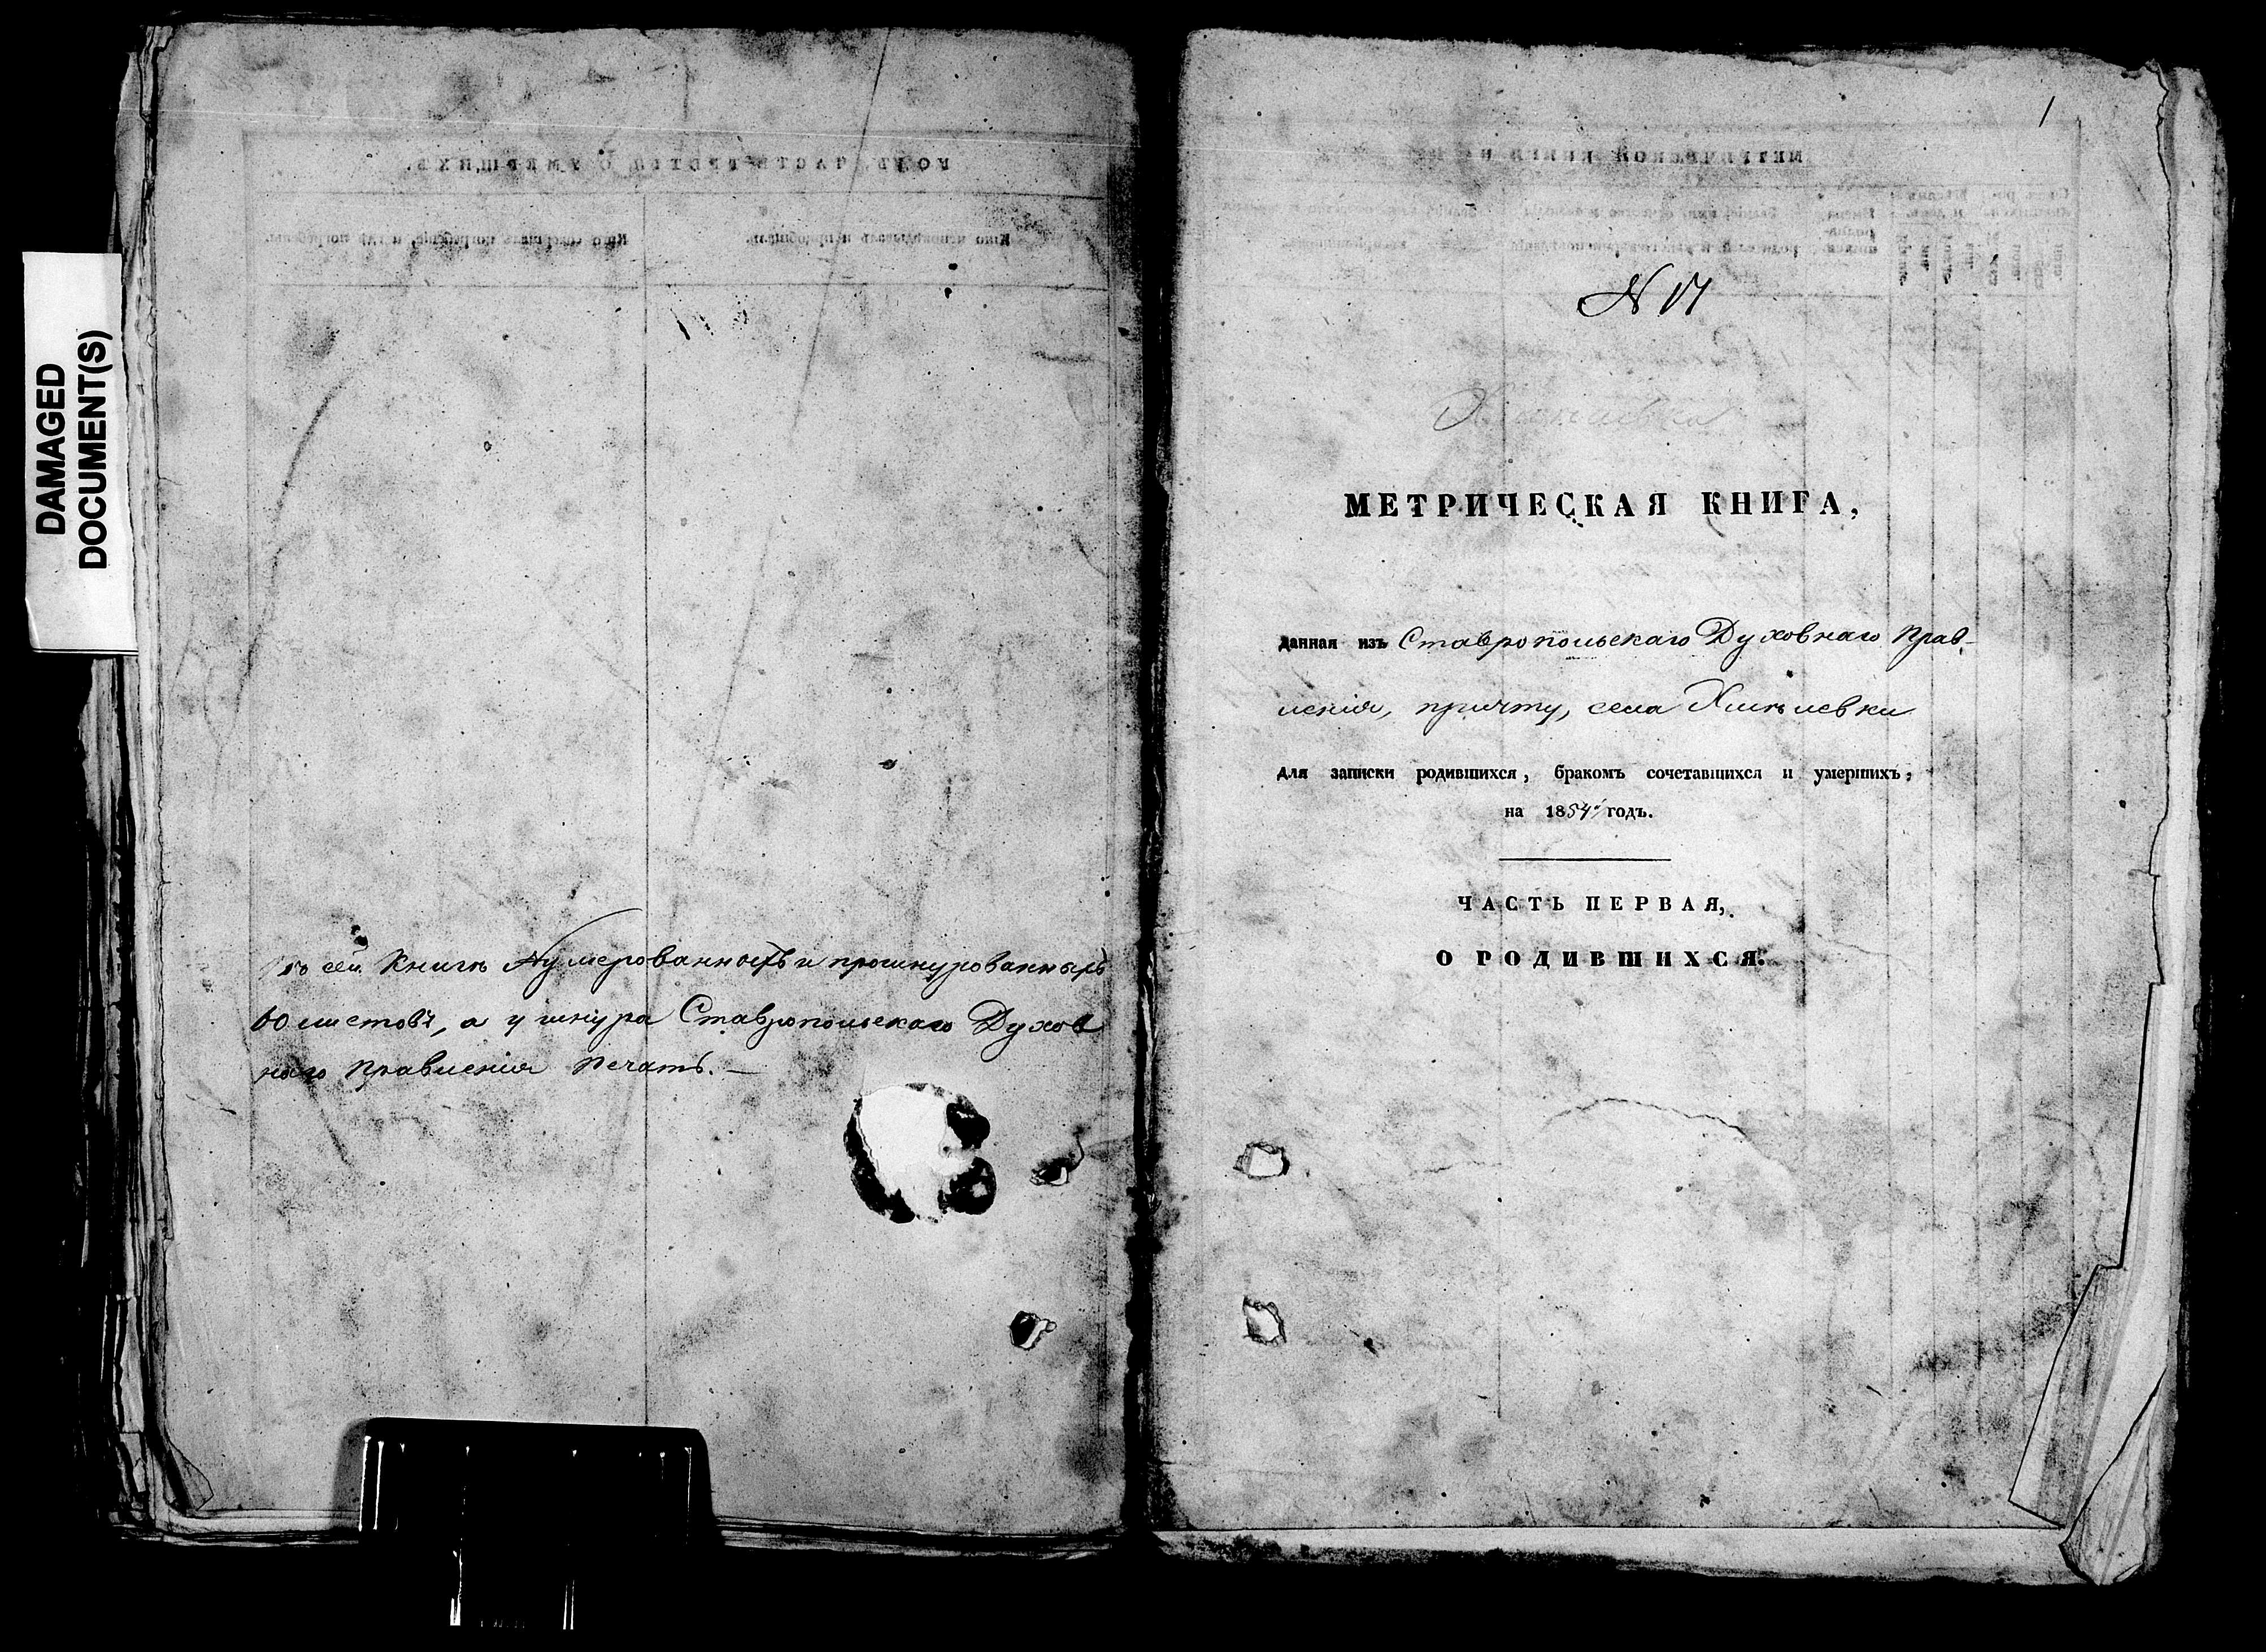 DAMAGED
DOCUMENT(S)
сей Книгѣ Нумерованныхъ и прошнурованныхъ
60 листовъ, а у шнура Ставропольскаго Духов
наго Правленія Печать. —
1
N 17
Хмѣлевка
МЕТРИЧЕСКАЯ КНИГА,
данная изъ Ставропольскаго Духовнаго Прав-
ленія, причту, села Хмѣлевки
для записки родившихся, бракомъ сочетавшихся и умершихъ,
на 1854й годъ.
ЧАСТЬ ПЕРВАЯ,
О РОДИВШИХСЯ.